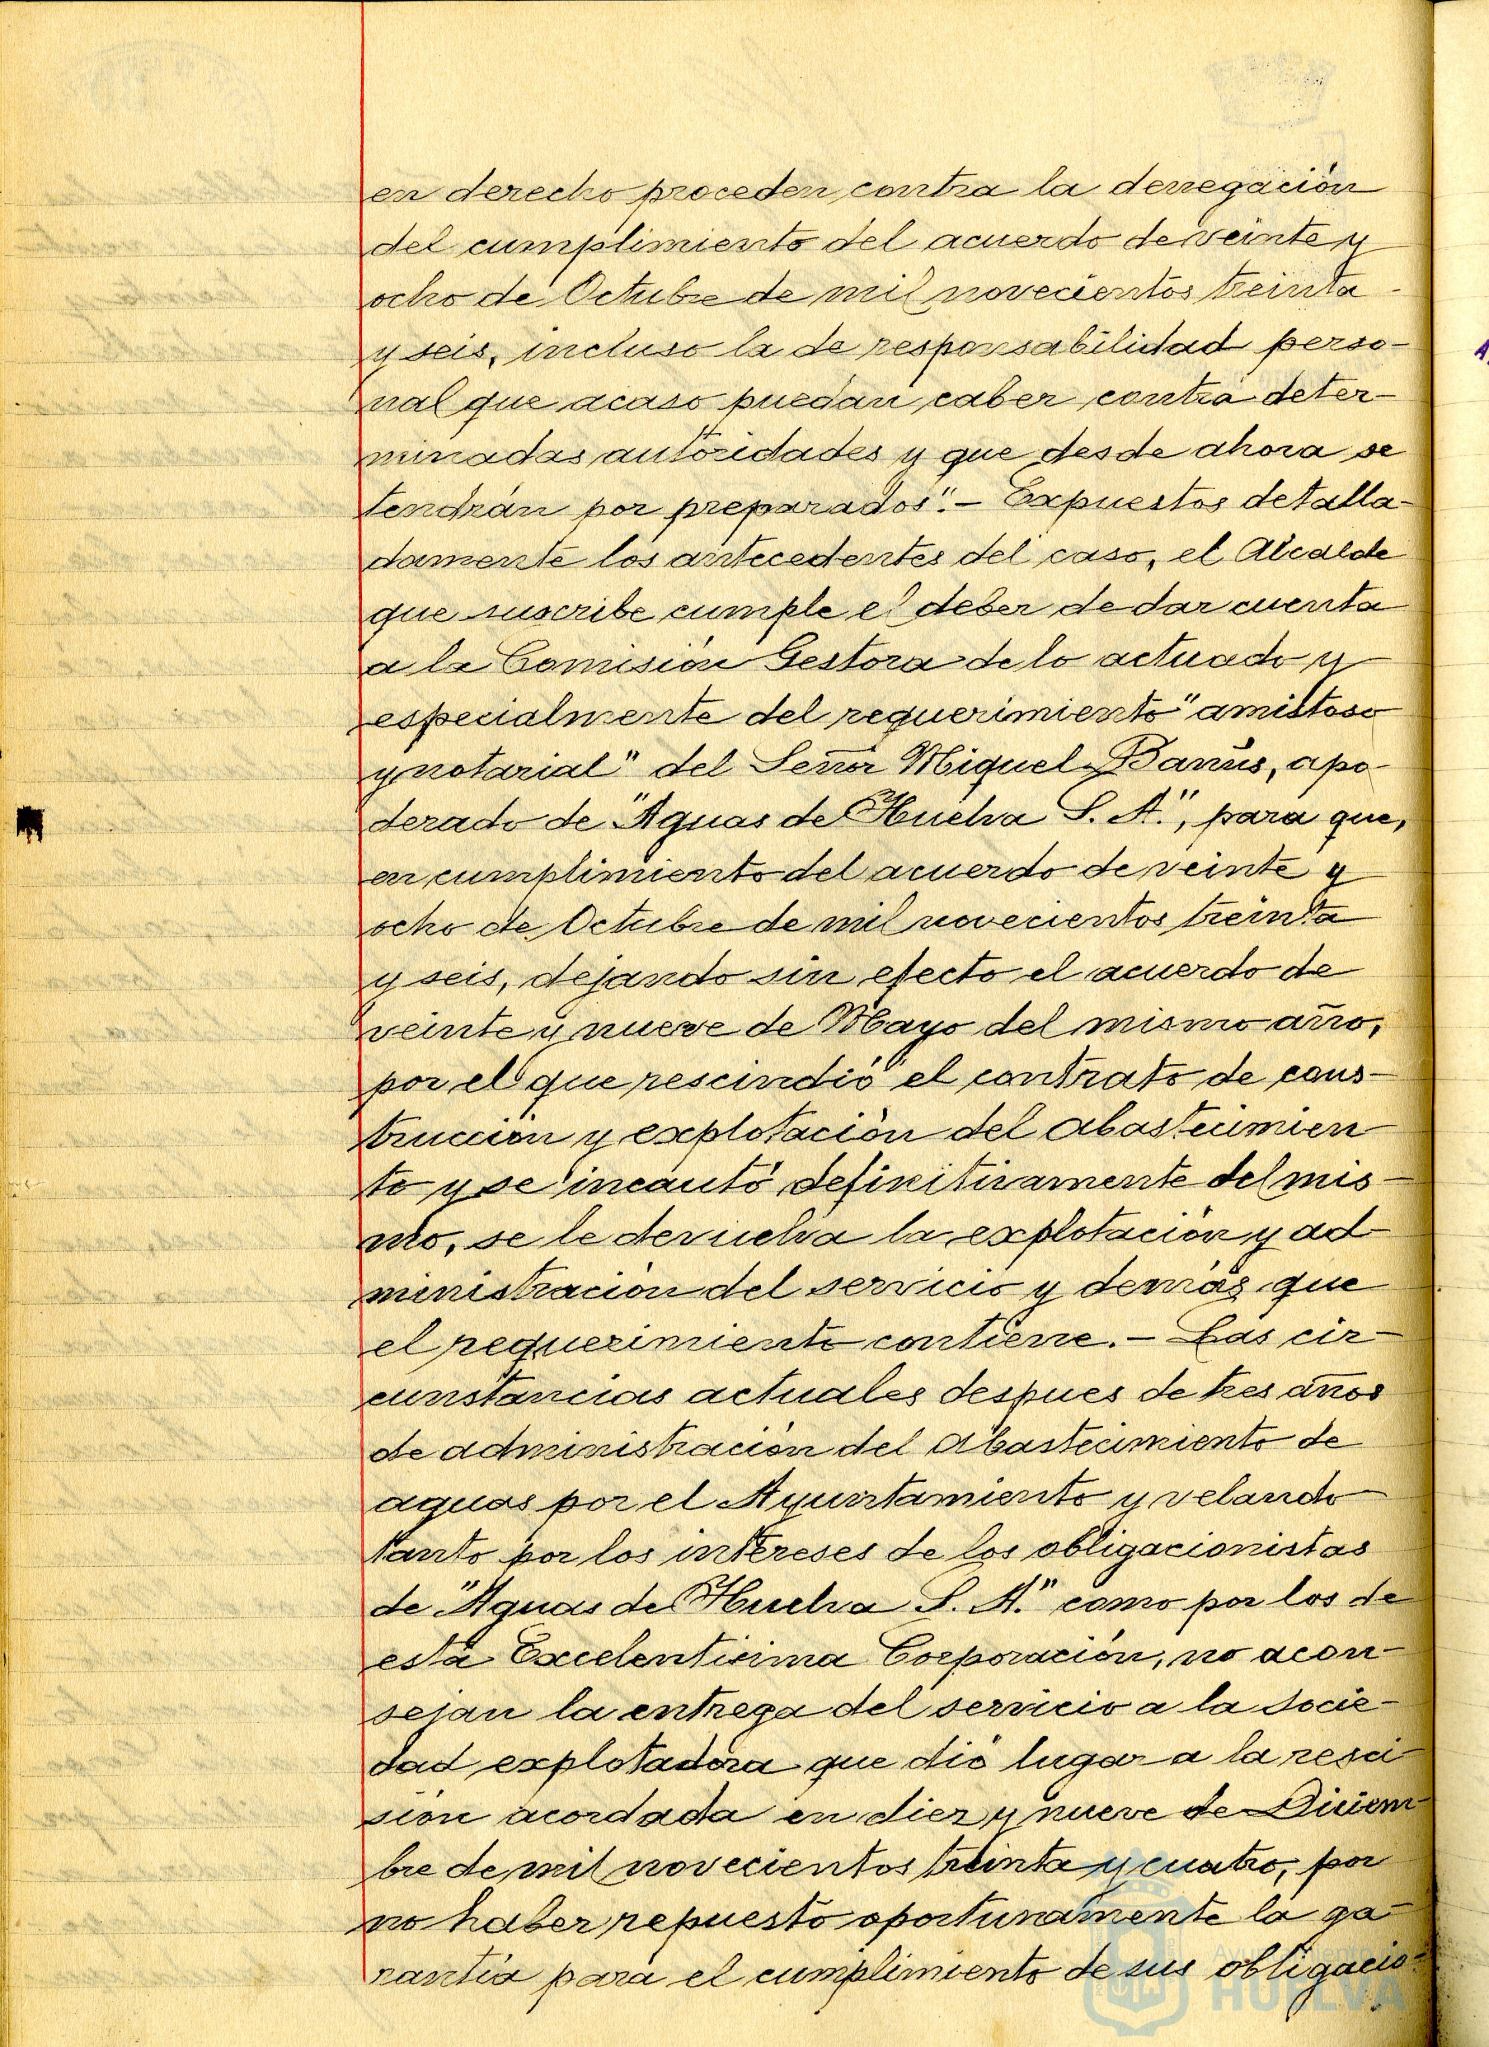 en derecho proceden contra la denegación
del cumplimiento del acuerdo de veinte y
ocho de Octubre de mil novecientos treinta
y seis, incluso la de responsabilidad perso-
nal que acaso puedan caber contra deter-
minadas autoridades y que desde ahora se
tendrán por preparados".- Expuestos detalla-
damente los antecedentes del caso, el Alcalde
que suscribe cumple el deber de dar cuenta
a la Comisión Gestora de lo actuado y
especialmente del requerimiento "amistoso
y notarial" del Señor Miquel Banús, apo-
derado de "Aguas de Huelva S. A.", para que,
en cumplimiento del acuerdo de veinte y
ocho de Octubre de mil novecientos treinta
y seis, dejando sin efecto el acuerdo de
veinte y nueve de Mayo del mismo año,
por el que rescindió el contrato de cons-
trucción y explotación del abastecimien
to y se incautó definitivamente del mis-
mo, se le devuelva la explotación y ad-
ministración del servicio y demás que
el requerimiento contiene.- Las cir-
cunstancias actuales despues de tres años
de administración del abastecimiento de
aguas por el Ayuntamiento y velando
tanto por los intereses de los obligacionistas
de "Aguas de Huelva S. A." como por los de
esta Excelentisima Corporación, no acon-
sejan la entrega del servicio a la Socie-
dad explotadora que dió lugar a la resci-
sión acordada en diez y nueve de Diciem-
bre de mil novecientos treinta y cuatro, por
no haber repuesto oportunamente la ga-
rantia para el cumplimiento de sus obligacio-
Ayuntamiento
HUELVA